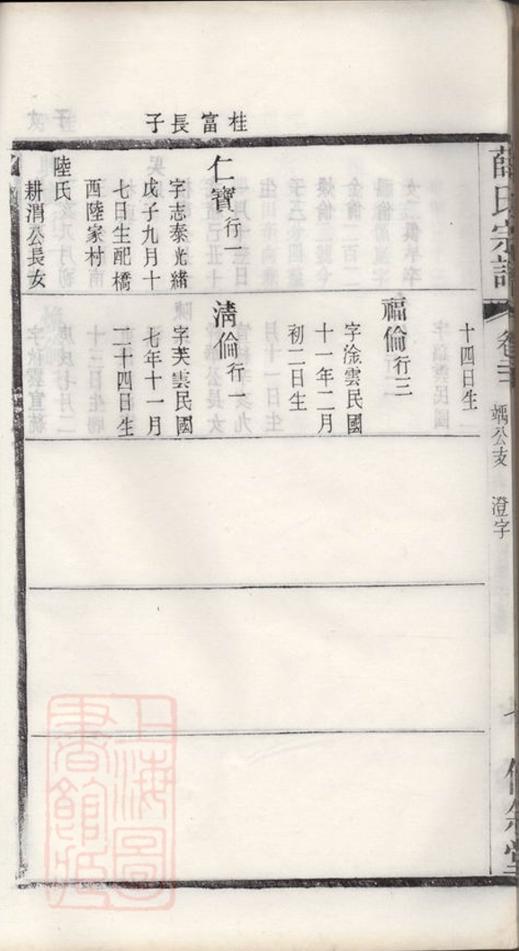 桂富長子
仁寶行一
字志泰光緒
戊子九月十
七日生配橋
西陸家村
陸氏
耕渭公長女
十四日生
福倫行三
字淦雲民國
十一年二月
初二日生
清倫行一
字芙雲民國
七年十一月
二十四日生
薛氏宗譜
卷三
公支
澄字
上海圖書館藏